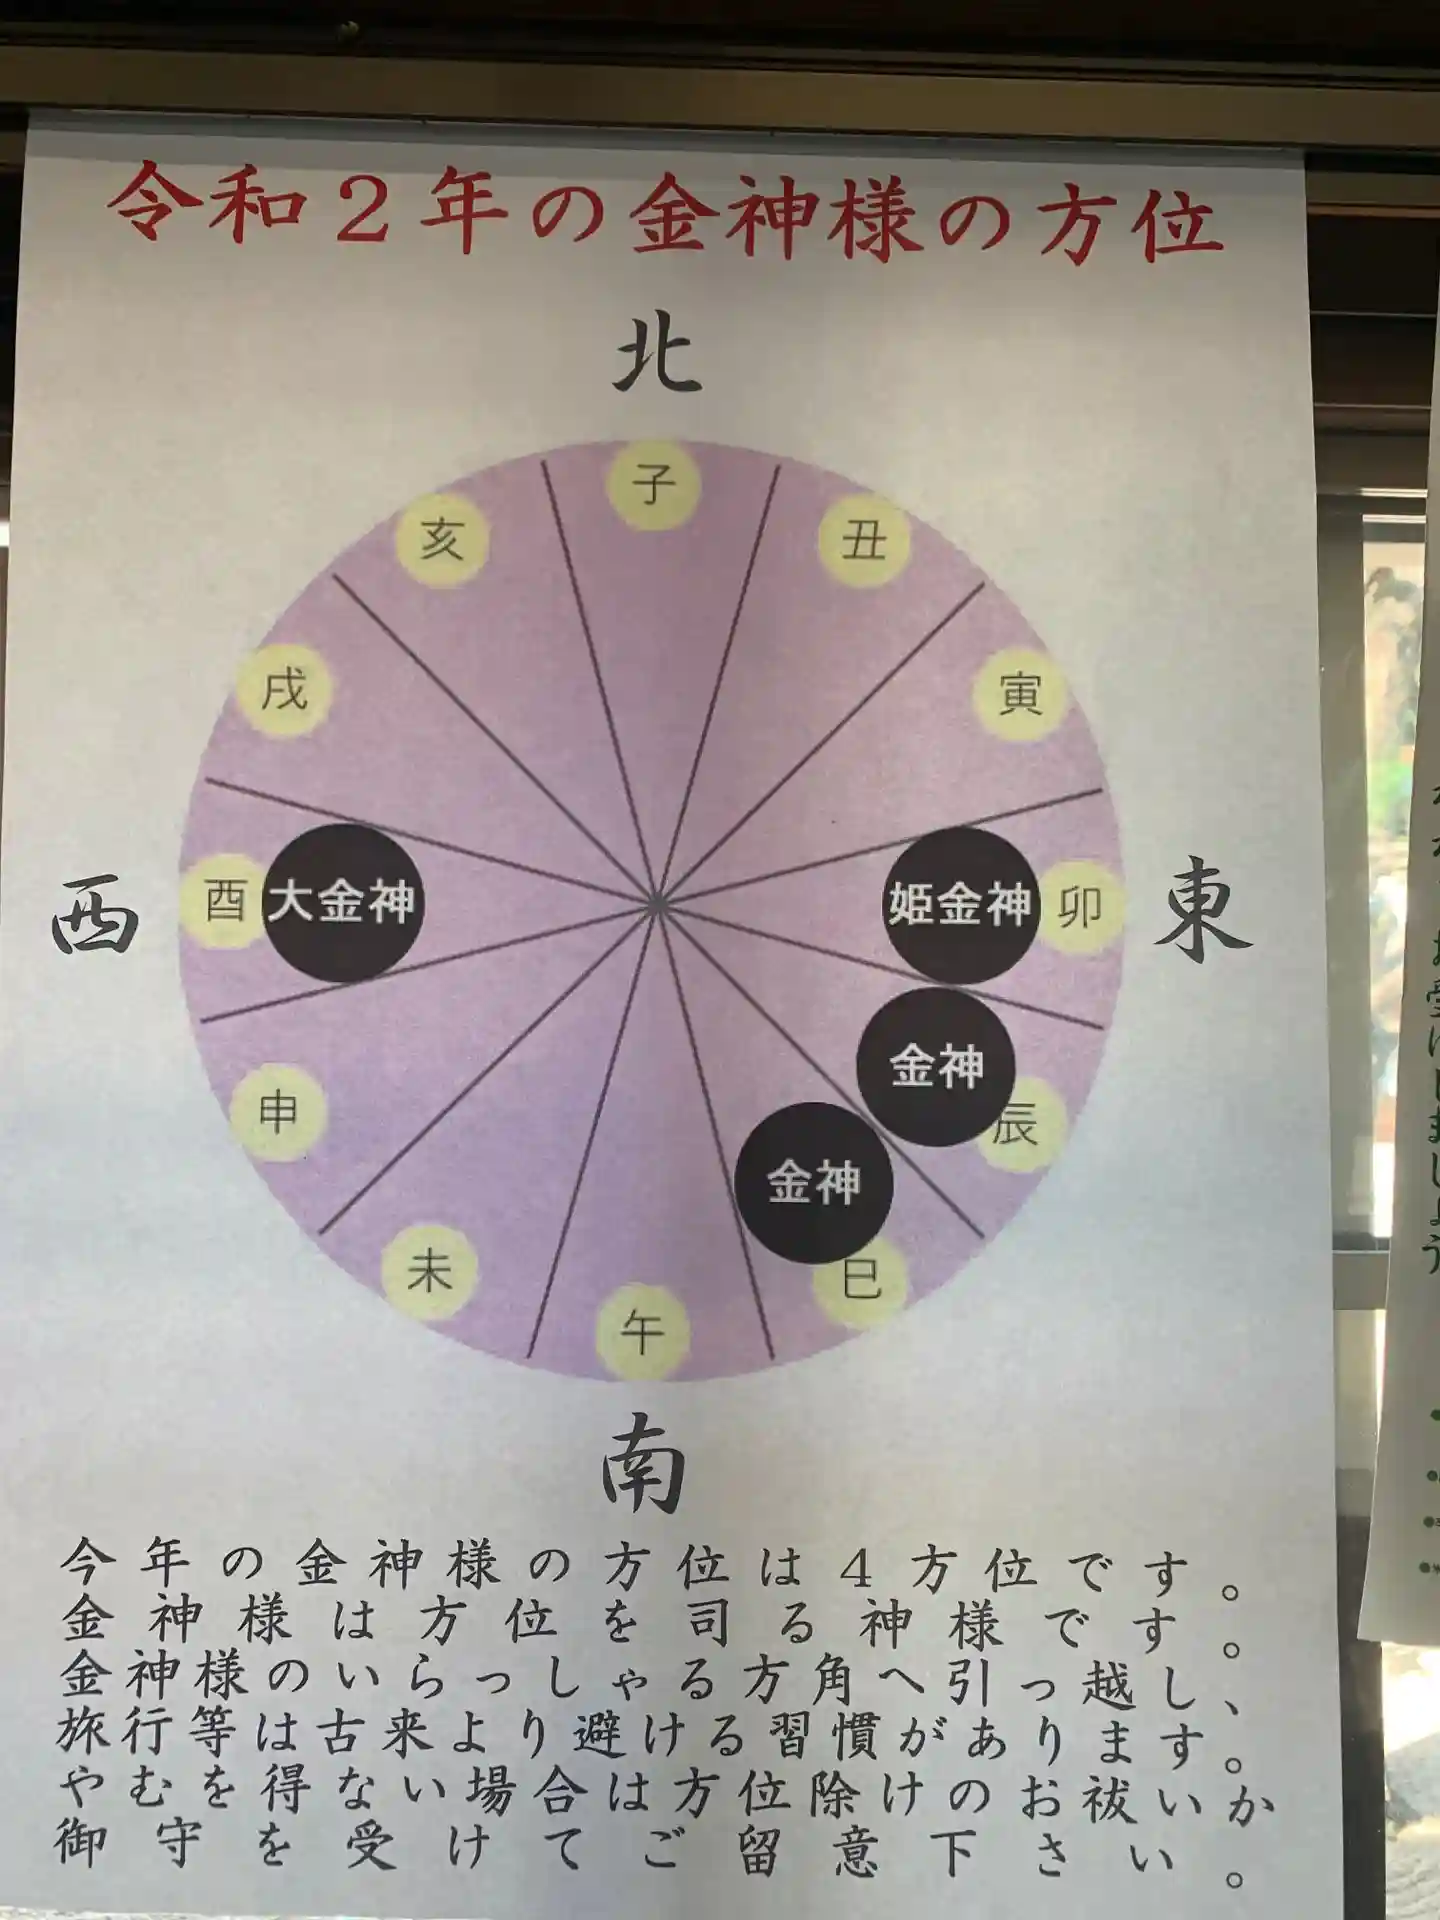 令和２年の金神様の方位
北
子
亥
丑
戌
寅
西
酉
大金神
姫金神
卯
東
金神
申
辰
金神
未
巳
午
南
今年の金神様の方位は４方位です。
金神様は方位を司る神様です。
金神様のいらっしゃる方角へ引っ越し、
旅行等は古来より避ける習慣があります。
やむを得ない場合は方位除けのお祓いか
御守を受けてご留意下さい。
お受けしましょう